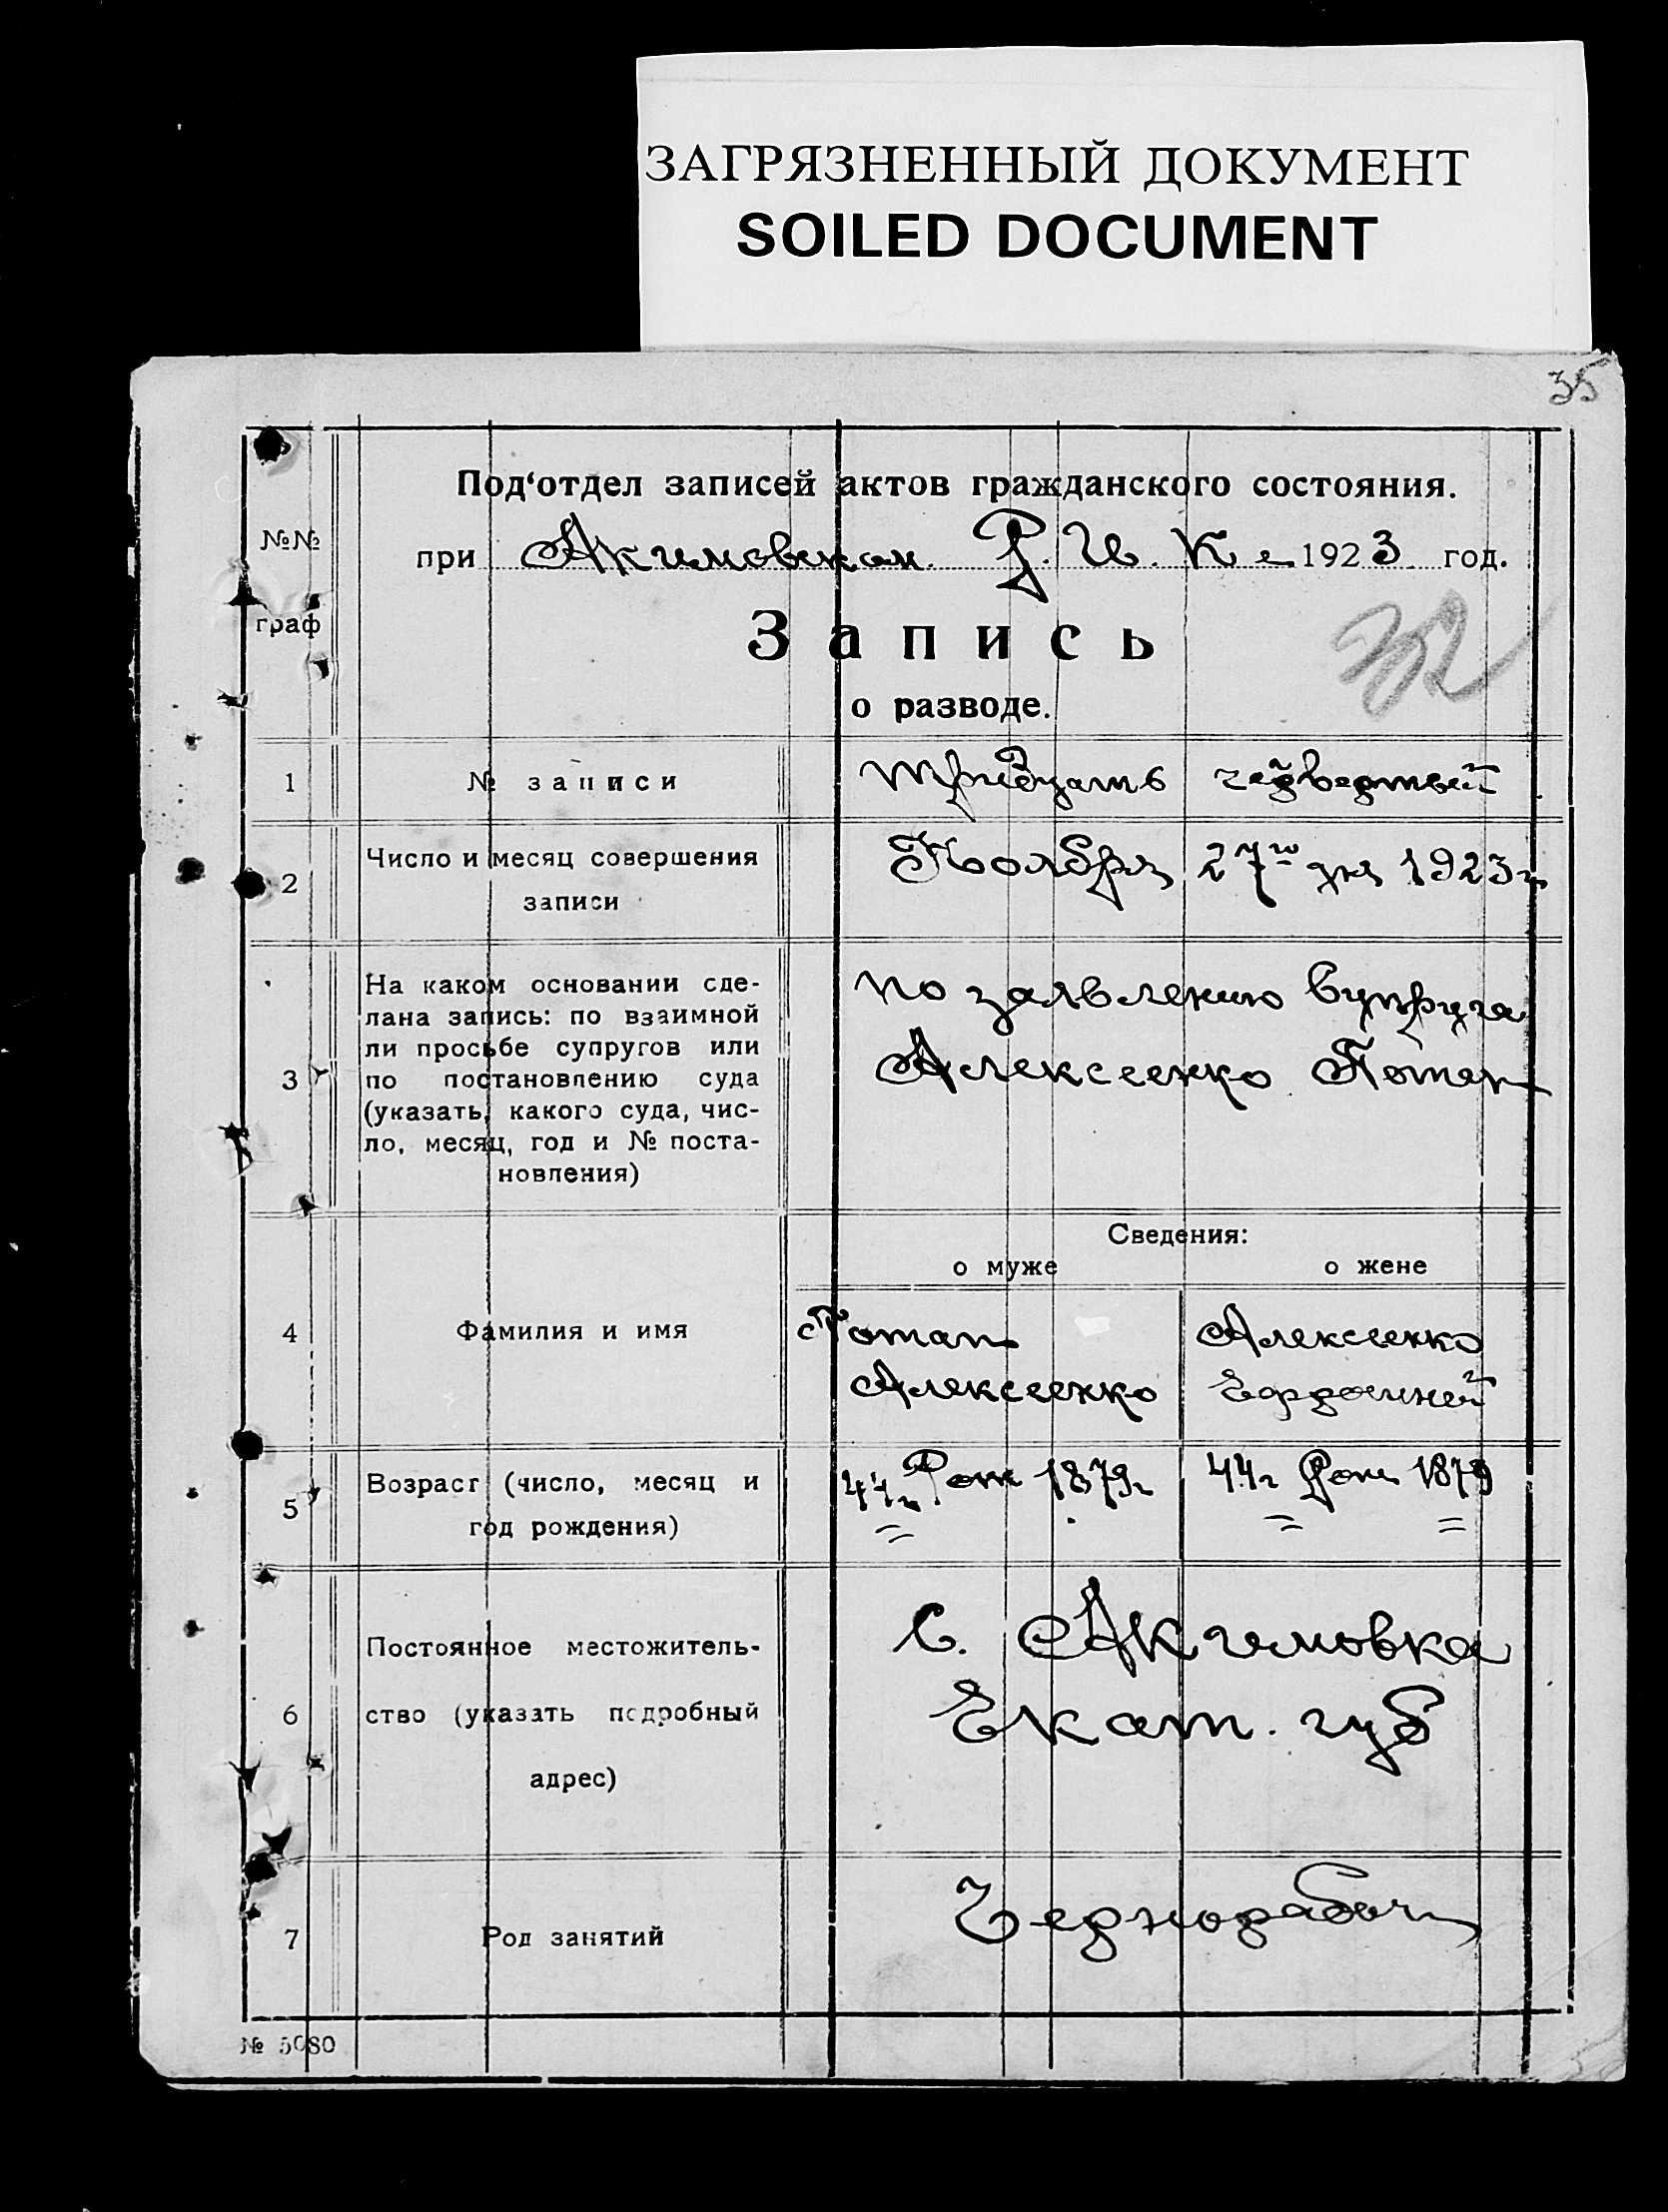 ЗАГРЯЗНЕННЫЙ ДОКУМЕНТ
SOILED DOCUMENT
35
Под'отдел записей актов гражданского состояния.
№№
граф
при Акимовском Р. И. К е 1923 год.
Запись
о разводе.
1 № записи Тридцать четвертый
2 Число и месяц совершения
записи
Ноября 27го дня 1923 г
3 На каком основании сде-
лана запись: по взаимной
ли просьбе супругов или
по постановлению суда
(указать, какого суда, чис-
ло, месяц, год и № поста-
новления)
по заявлению Супруга
Алексеенко Потап
Сведения:
о муже о жене
4 Фамилия и имя
Потап
Алексеенко
Алексеенко
5 Возраст (число, месяц и
год рождения)
44 г. Рож 1879 г
44 г Рож 1879
6 Постоянное местожитель-
ство (указать подробный
адрес)
С. Акимовка
Екат. губ
7 Род занятий Чернорабоч
№ 5080